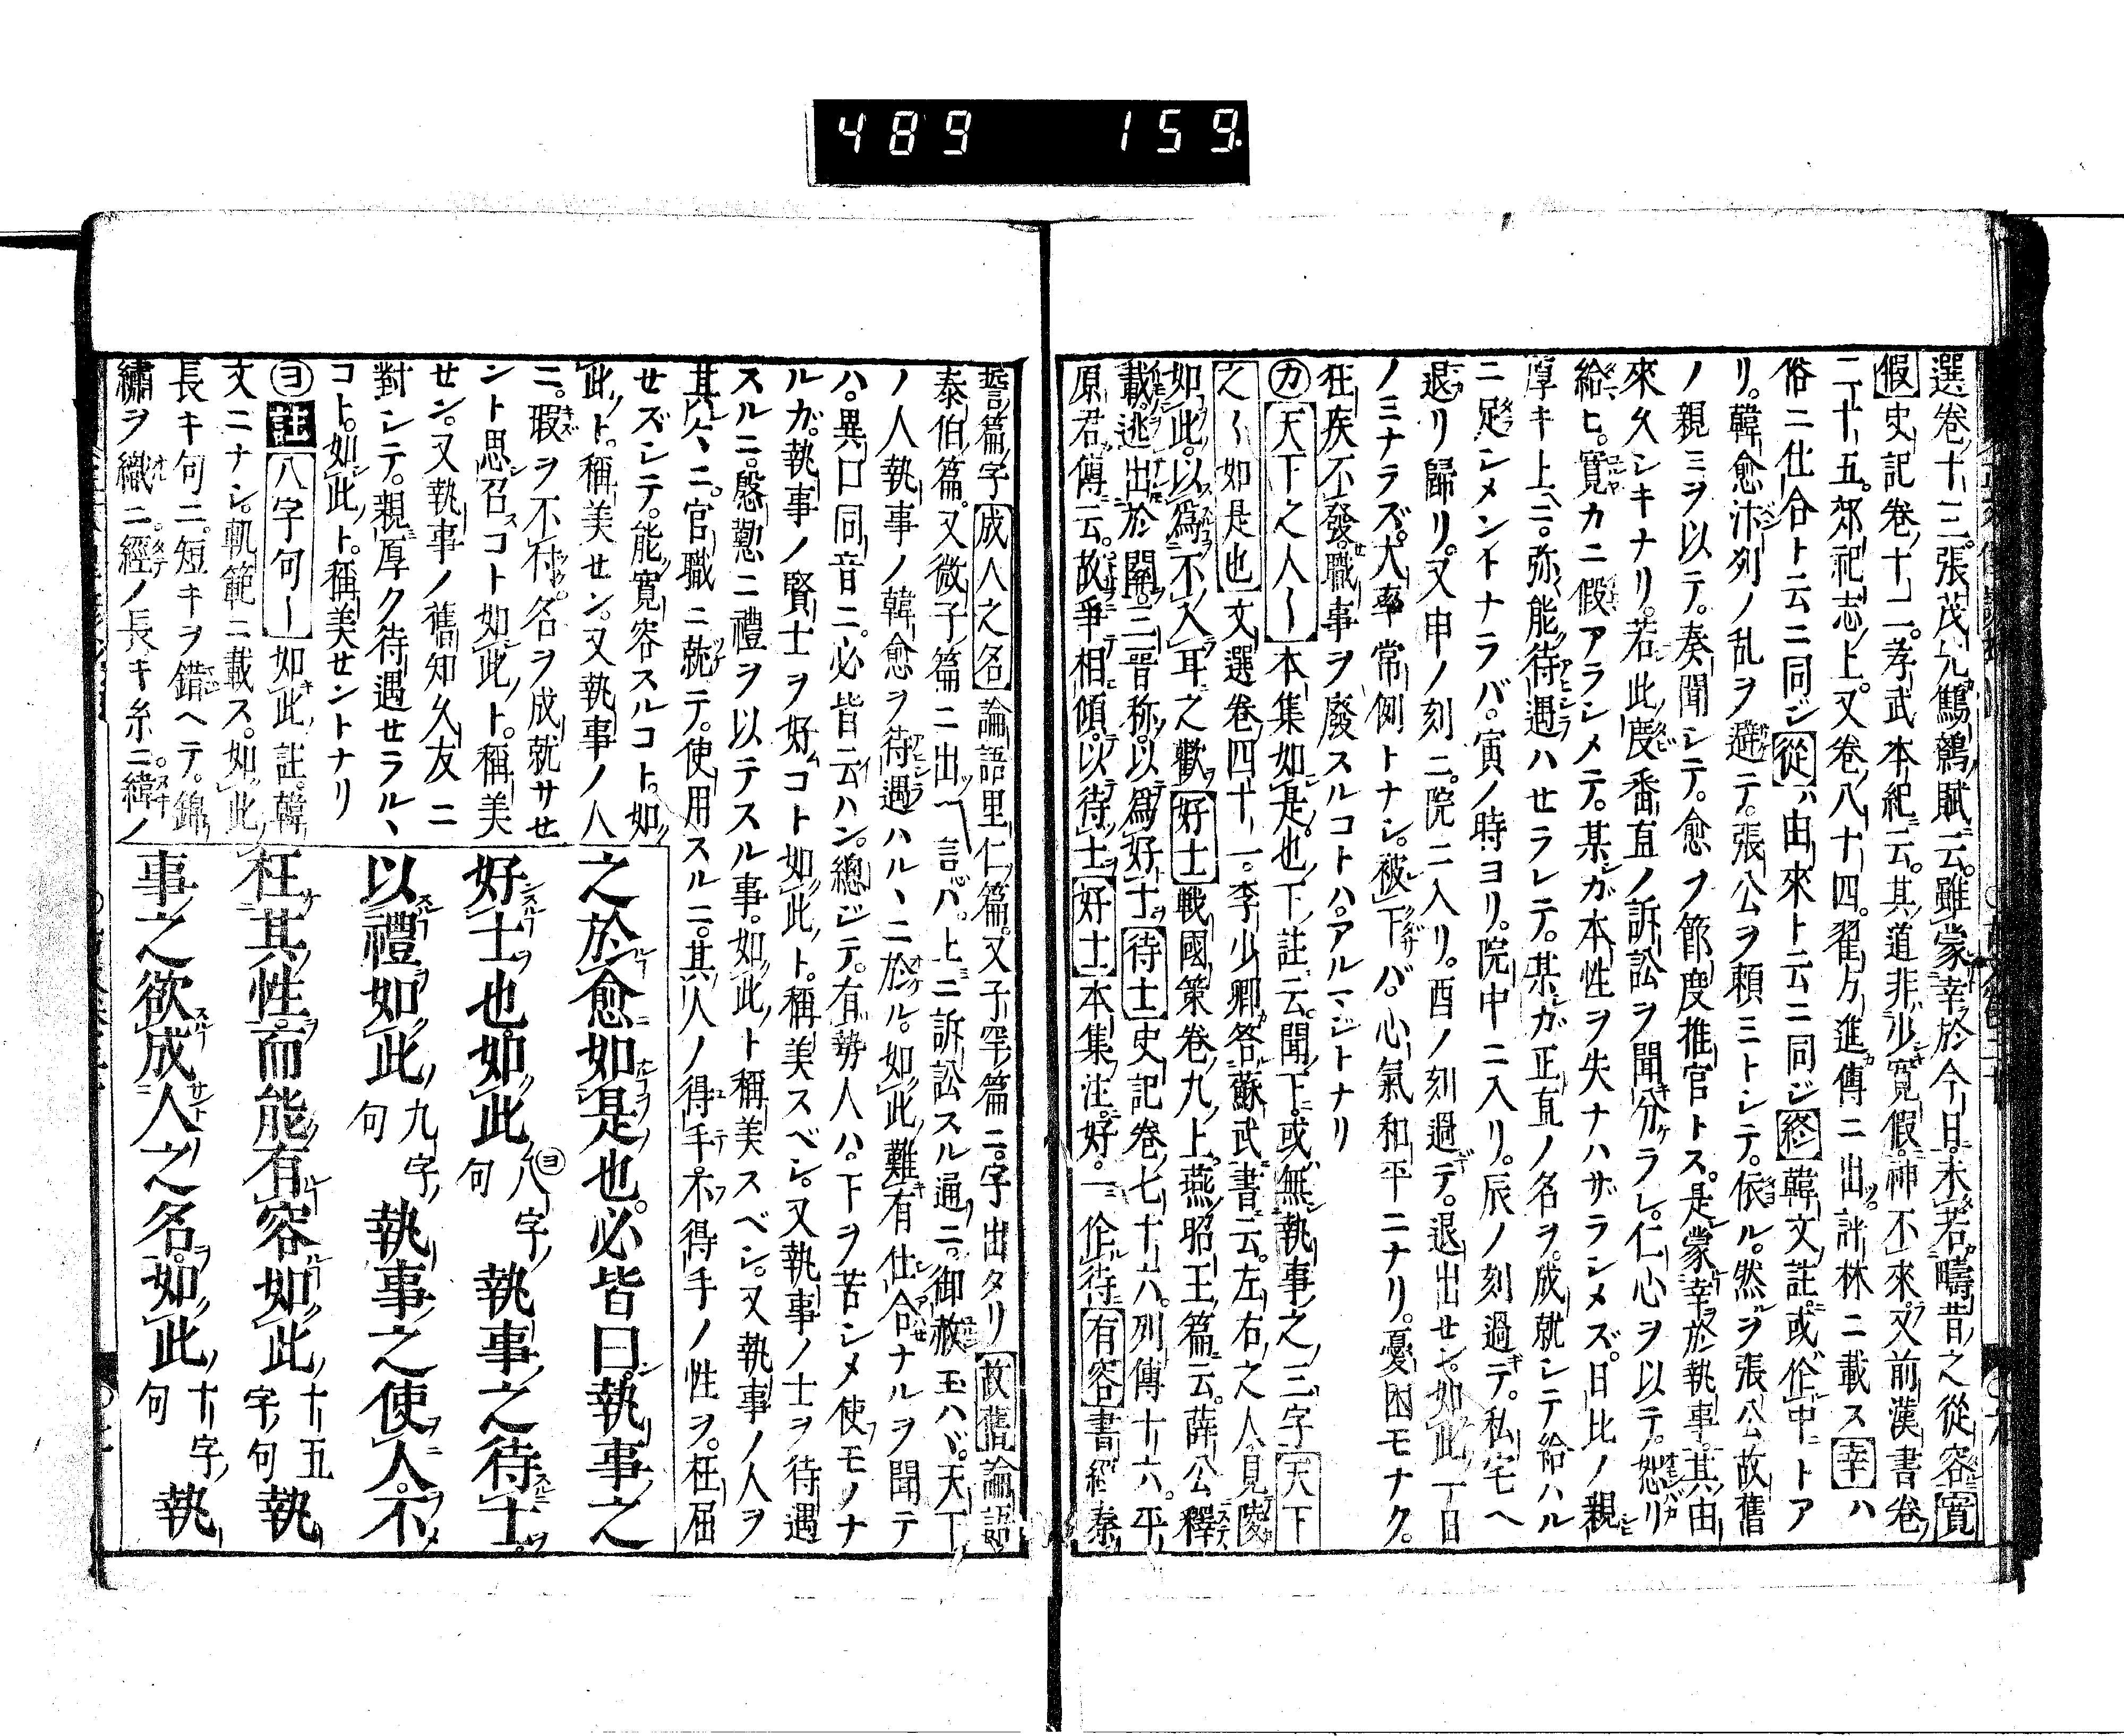 489 159
選卷十三張茂先鷦鷯賦云雖蒙幸於今日未若疇昔之從容寛
假史記卷十二孝武本紀云其道非少寛假神不來又前漢書卷
二十五郊祀志上又卷八十四翟方進傳ニ出評林ニ載ス幸ハ
俗ニ仕合ト云ニ同ジ從ハ由來ト云ニ同ジ終韓文註或作中トア
リ。韓愈汴列ノ乱ヲ避テ。張公ヲ頼ミトシテ。依ル。然ヲ張公故舊
ノ親ミヲ以テ。奏聞シテ。愈ヲ節度推官トス。是蒙幸於執事其由
來久シキナリ。若此度番直ノ訴訟ヲ聞分ラレ。仁心ヲ以テ。恕リ
給ヒ。寛カニ假アラシメテ。某ガ本性ヲ失ナハザラシメズ。日比ノ親
厚キ上ニ。弥能待遇ハセラレテ。某ガ正直ノ名ヲ。成就シテ給ハル
ニ足シメントナラバ。寅ノ時ヨリ。院中ニ入リ。辰ノ刻過テ。私宅ヘ
退リ歸リ。又申ノ刻ニ。院ニ入リ。酉ノ刻過テ。退出セン。如此丁日
ノミナラズ。大率常例トナシ。被下バ。心氣和平ニナリ。憂困モナク。
狂疾不發。職事ヲ廢スルコトハ。アルマジトナリ
カ 天下之人〱本集如是也下註云聞下或無執事之三字天下
之〱如是也文選卷四十一李少卿答蘇武書云左右之人見陵
如此以為不入耳之歡好士戰國策卷九上燕昭王篇云薛公釋
載逃出於關三晋称以為好士待士史記卷七十六列傳十六平
原君傳云故爭相傾以待士好士本集注好一作待有容書經秦
誓篇字成人之名論語里仁篇又子罕篇ニ字出タリ故舊論語
泰伯篇又微子篇ニ出〱言バ。上ニ訴訟スル通ニ。御赦玉ハバ。天下
ノ人執事ノ韓愈ヲ待遇ハルヽニ於ル。如此難有仕合ナルヲ聞テ
ハ。異口同音ニ。必皆云ハン。總ジテ。有勢人ハ。下ヲ苦シメ使モノナ
ルガ。執事ノ賢士ヲ好コト如此ト。稱美スベシ。又執事ノ士ヲ待遇
スルニ。慇懃ニ禮ヲ以テスル事。如此ト稱美スベシ。又執事ノ人ヲ
其人ヽニ。官職ニ就テ。使用スルニ。其人ノ得手不得手ノ性ヲ。枉屈
セズシテ。能寛容スルコト。如
此ト。稱美セン。又執事ノ人
ニ。瑕ヲ不付。名ヲ成就サセ
ント思召コト如此ト。稱美
セン。又執事ノ舊知久友ニ
對シテ。親厚ク待遇セラルヽ
コト。如此ト。稱美セントナリ
ヨ 註 八字句〱如此註。韓
文ニナシ。軌範ニ載ス。如此
長キ句ニ。短キヲ錯ヘテ。錦
繡ヲ織ニ。經ノ長キ糸ニ緯ノ
之於愈如是也。必皆曰。執事之
好士也如此 ヨ八字句 執事之待士
以禮如此 九字句 執事之使人不
枉其性而能有容如此 十五字句 執
事之欲成人之名如此 十字句 執